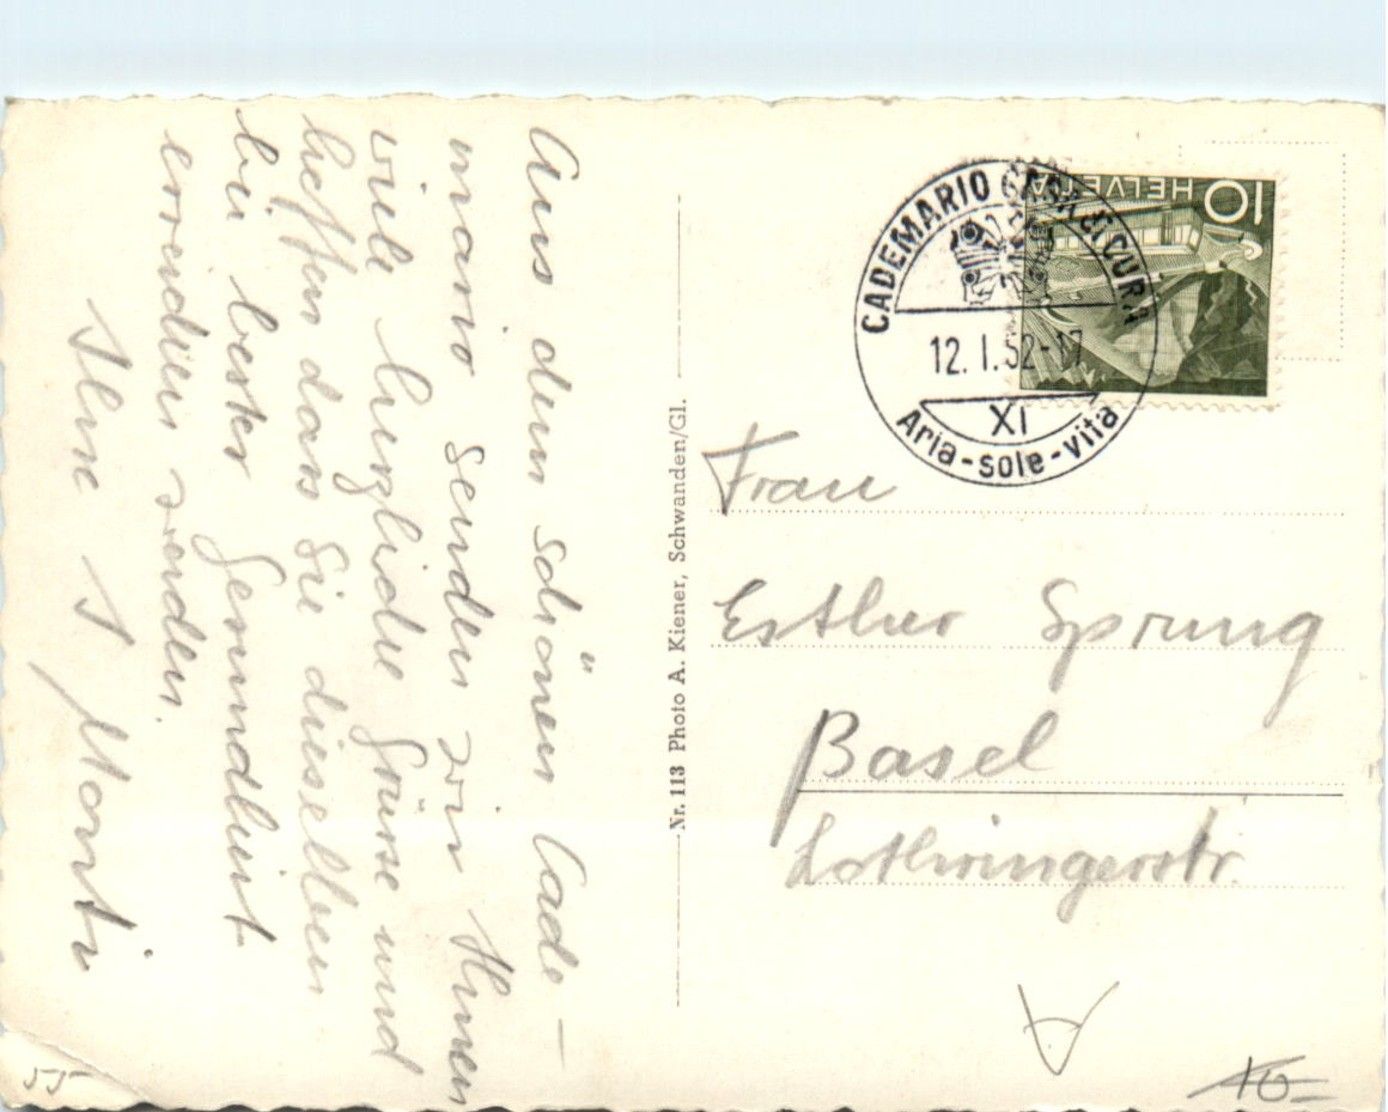 Aus dem schönen Cade-
mario senden wir Ihnen
viele herzliche Grüsse und
hoffen dass Sie dieselben
bei bester Gesundheit
erreichen werden.
Ihre Marti
Nr. 113 Photo A. Kiener, Schwanden/Gl.
CADEMARIO CASA di CURA
12. I. 52-17
XI
Aria-sole-vita
HELVETIA 10
Frau
Esther Sprung
Basel
Lothringerstr.
55
10-